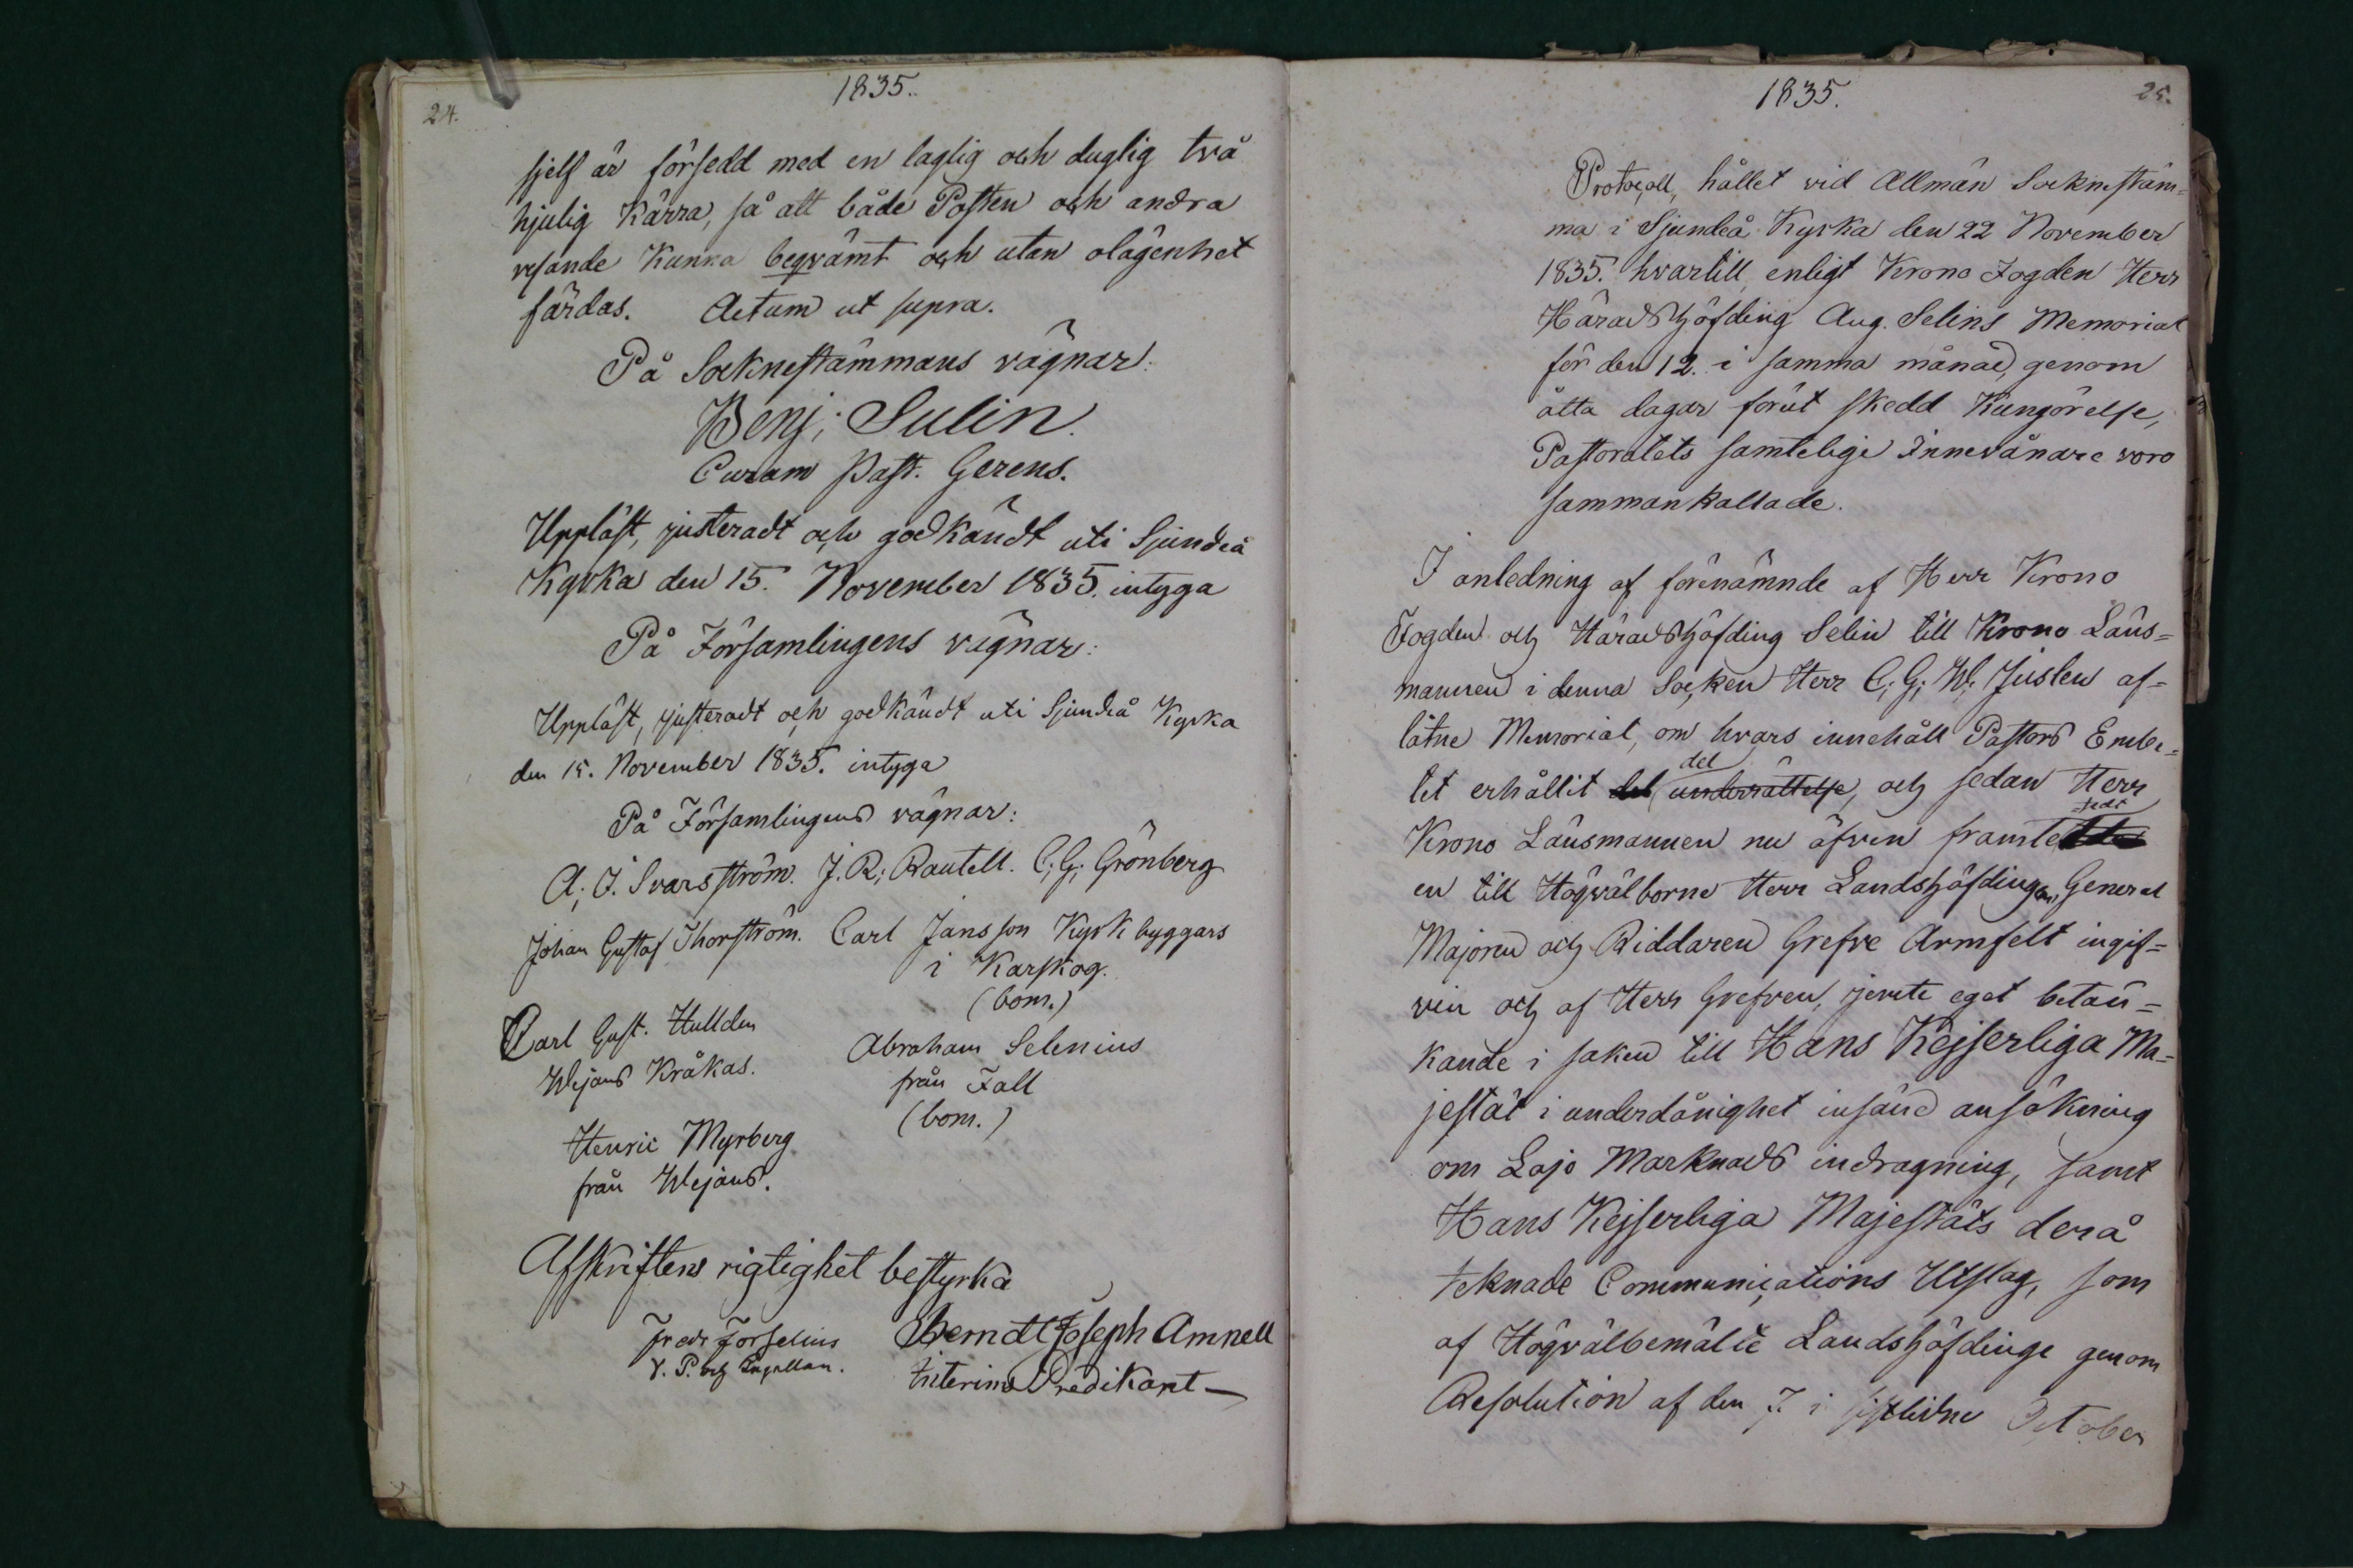 24.
1835.
sjelf är försedd med en laglig och duglig två
hjulig Kärra, så att både Posten och andra
resande Kunna beqvämt och utan olägenhet
färdas. Actum ut supra.
På Socknestämmans vägnar:
Benj; Sulin.
Curam Past. Gerens.
Uppläst, justeradt och godkändt uti Sjundeå
Kyrka den 15. November 1835. intyga
På Församlingens vägnar:
Uppläst, justeradt och godkändt uti Sjundeå Kyrka
den 15. November 1835. intyga
På Församlingens vägnar:
A; J. Svarsström. J. R; Rautell. C; G; Grönberg
Johan Gustaf Thorström. Carl Jansson Kyrkbyggars
i Karskog.
(bom.)
Carl Gust. Hullden
Wejans Kråkas.
Abraham Selenius
från Fall
(bom.)
Henric Myrberg
från Wejans.
Afskriftens rigtighet bestyrka
Fredr Forselius
V. P. och Capellan.
Berndt Joseph Amnell
Interims Predikant
25.
1835.
Protocoll, hållet vid Allmän Socknestäm=
ma i Sjundeå Kyrka den 22 November
1835. hvartill, enligt Krono Fogden Herr
Häradshöfding Aug. Selins Memorial
för den 12. i samma månad, genom
åtta dagar förut skedd Kungörelse,
Pastoratets samtelige Innevånare voro
sammankallade.
I anledning af förenämnde af Herr Krono
Fogden och Häradshöfding Selin till Krono Läns=
mannen i denna Socken Herr C; G; W; Juslen af=
låtne Memorial, om hvars innehåll Pastors Embe=
del
tet erhållit del underrättelse, och sedan Herr
Krono Länsmannen nu äfven framte
en till Högvälborne Herr Landshöfdingen, General
Majoren och Riddaren Grefve Armfelt ingif=
ven och af Herr Grefven, jemte eget betän=
kande i saken till Hans Kejserliga Ma=
jestät i underdånighet insänd ansökning
om Lojo Marknads indragning, samt
Hans Kejserliga Majestäts derå
teknade Communications Utslag, som
af Högvälbemälte Landshöfdinge genom
Resolution af den 7. i sistlidne October